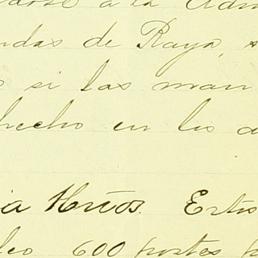 a la Adm
ndas de Raya, s
si las man
hecho en los d
ia Hnos. Esto
leo 600 postes p